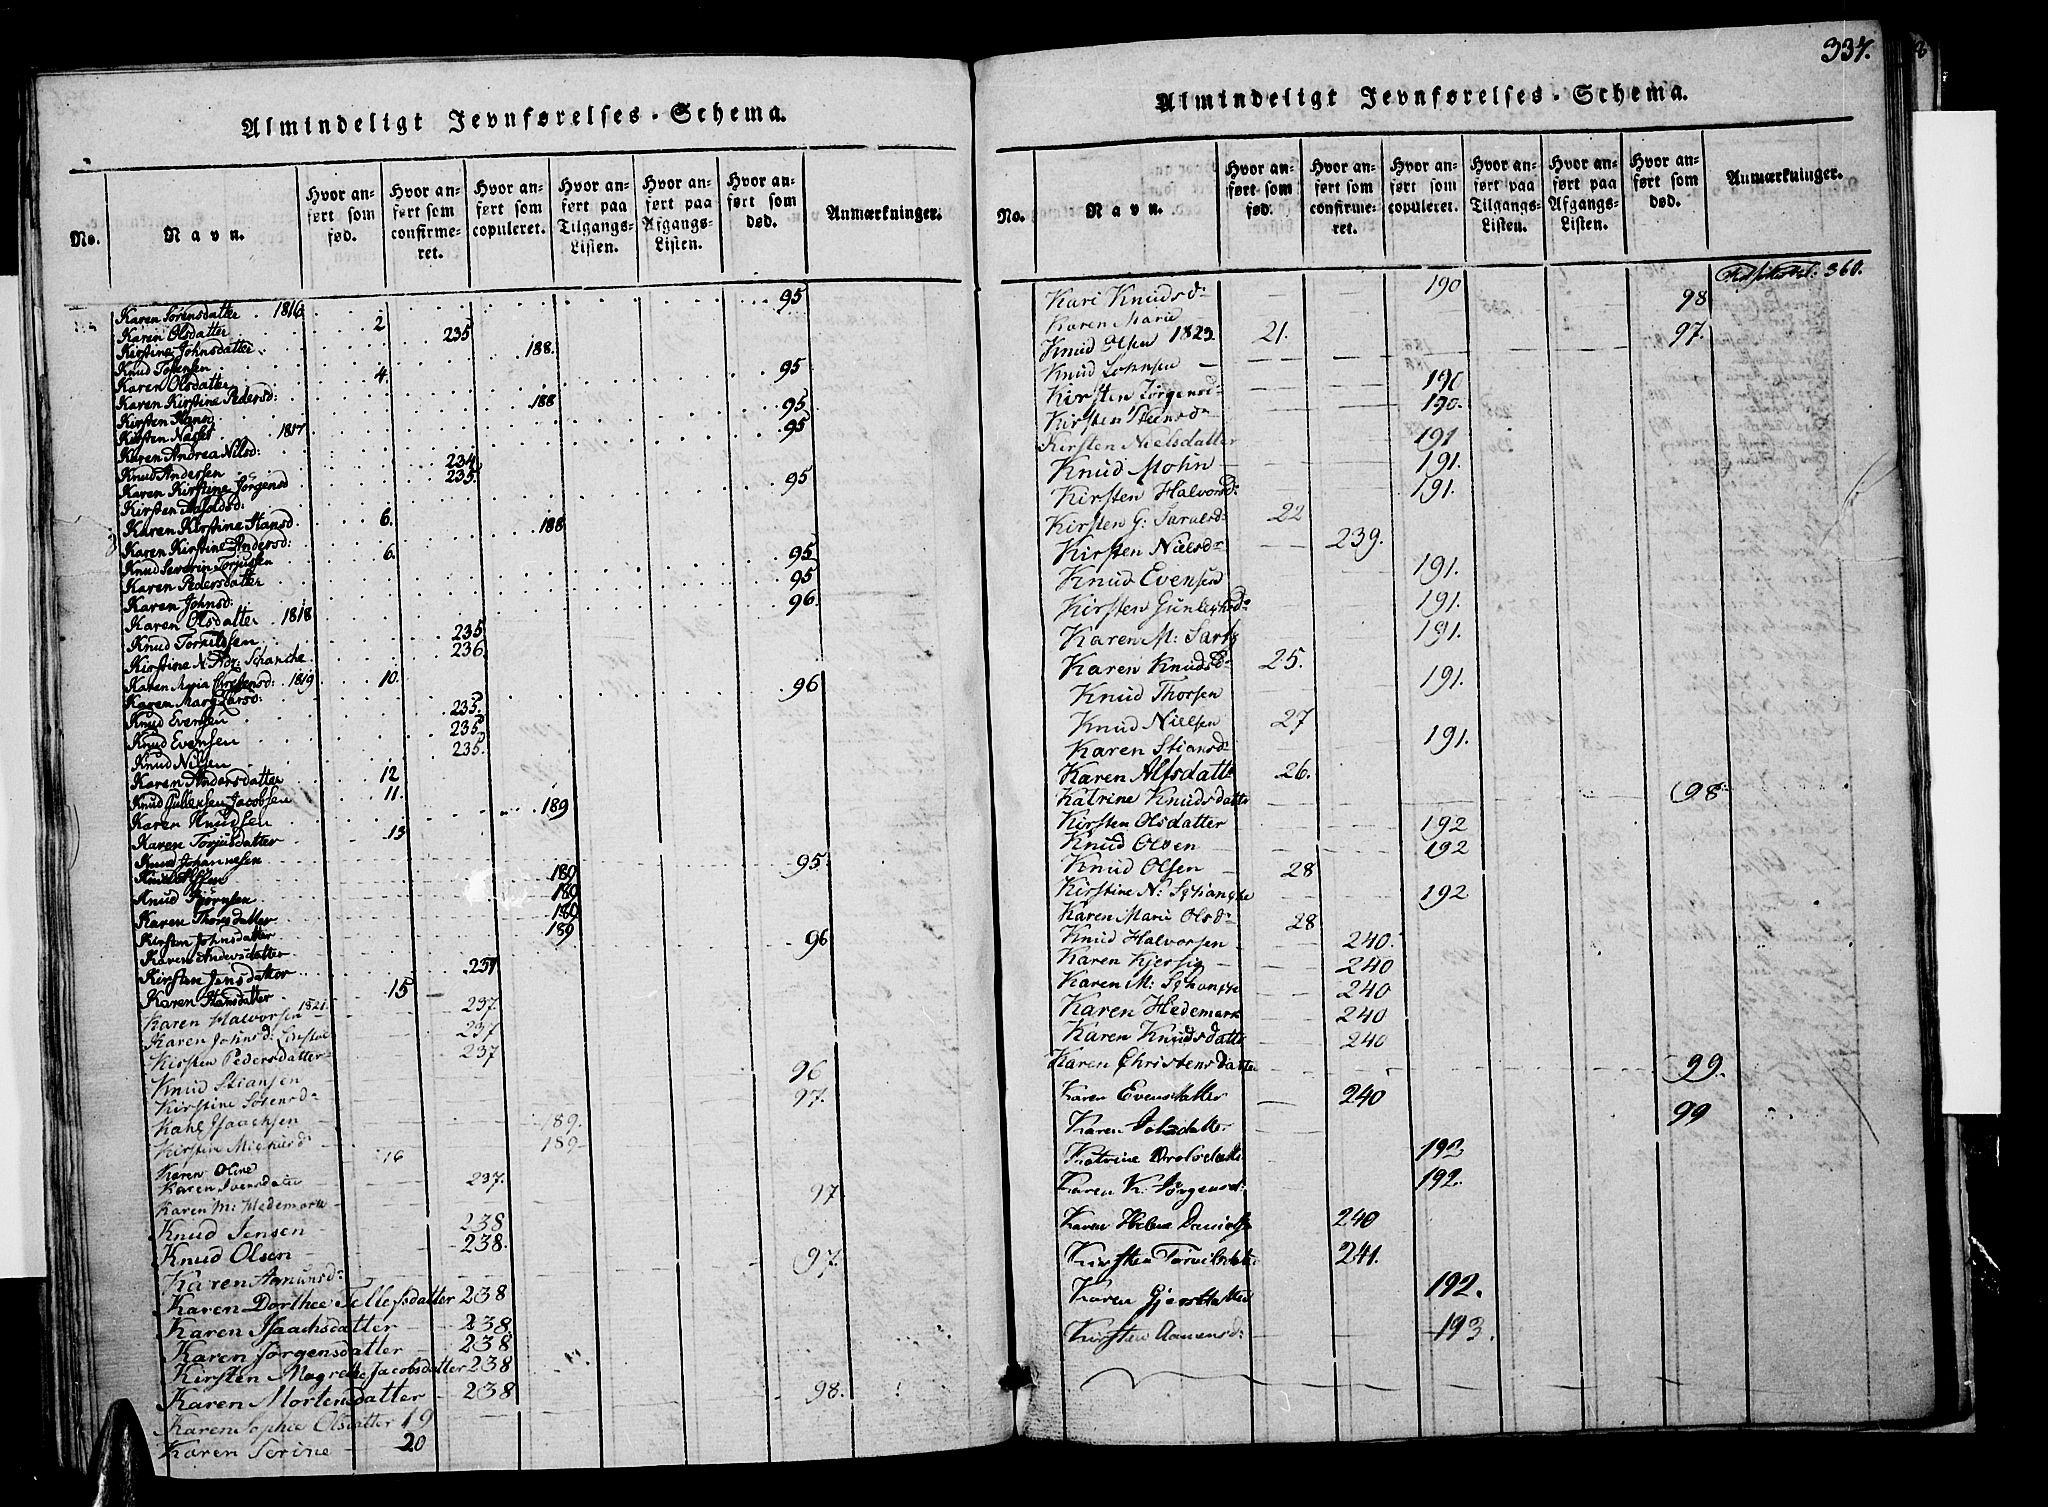 337.
Almindeligt Jevnførelses-Schema.
No.
Navn.
Hvor anført som fød.
Hvor anført som confirmeret.
Hvor anført som copuleret.
Hvor anført paa Tilgangs-Listen.
Hvor anført paa Afgangs-Listen.
Hvor anført som død.
Anmærkninger.
Karen Sørensdatter 1816. 95
Karen Olsdatter 2
Kirstine Johnsdatter 235
Knud Tostensen 188.
Karen Olsdatter 4.
Karen Kirstine Pedersd: 95
Kirsten 188
Kirsten 1817 95
Karen Andrea Nilsd: 95
Knud Andersen 234
Karen Kirstine Jörgensd 235.
Kirsten Aasoldsd: 95
Karen Kirstine Hansd. 6.
Karen Kirstine Andersd: 188
Knud Severin 6.
Karen Pedersdatter 95
Karen Johnsd: 95
Karen Olsdatter 1818 96.
Knud Torkildsen 235
Kirstine N. Schanche 236.
Karen Maria Christensd: 1819 10.
Karen Marg. Larsd: 96
Knud Evensen 235.
Knud Evensen 235
Knud Nilsen 235.
Karen Andersdatter 12
Knud Gullersen Jacobsen 11.
Karen Knudsen 189
Karen Torjusdatter 13
Knud Johannesen 95
Knud 189
Knud Bjørnsen 189
Karen Thorsdatter 189
Kirsten Johnsdatter 189
Karen Andersdatter 96
Kirsten Jensdatter 237
Karen Hansdatter 15
Karen Halvorsen 1821. 237.
Karen Johnsd: 237
Kirsten Pedersdatter 237
Knud Stiansen 96
Kirstine Sørensd: 97.
Kahl Isaachsen 189.
Kirstine 189
Karen Oline 16
Karen Ivensdatter 237.
Karen M: Hedemark 97
Knud Jensen 238
Knud Olsen 238.
Karen Amunsd: 97.
Karen Dorthee Tellefsdatter 238
Karen Isaachsdatter 238
Karen Jørgensdatter 238
Kirsten Magrethe Jacobsdatter 238
Karen Mortensdatter 238 98.
Karen Sophie Olsdatter 19
Karen Serine 20
Almindeligt Jevnførelses-Schema.
No.
Navn.
Hvor anført som fød.
Hvor anført som confirmeret.
Hvor anført som copuleret.
Hvor anført paa Tilgangs-Listen.
Hvor anført paa Afgangs-Listen.
Hvor anført som død.
Anmærkninger.
360.
Kari Knudsd: 190
Karen Marie 98
Knud Olsen 1823 21.
Knud Johnsen 97.
Kirsten Jörgensd: 190
Kirsten Steensd: 190.
Kirsten Nielsdatter 191
Knud Mohn 191.
Kirsten Halvorsd: 191.
Kirsten G: 22
Kirsten Nielsd: 239.
Knud Evensen 191.
Kirsten 191.
Karen M: 191.
Karen Knudsd: 25.
Knud Thorsen 191.
Knud Nielsen 27
Karen Stiansd: 191.
Karen Alfsdatt: 26.
Katrine Knudsdatter 98
Kirsten Olsdatter 192
Knud Olsen 192
Knud Olsen 28
Kirstine N: 192
Karen Marie Olsd: 28
Knud Halvorsen 240.
Karen 240
Karen M: 240
Karen Hedemark 240
Karen Knudsdatter 240
Karen Christensdatter 99.
Karen Evensdatter 240
Karen 99
Katrine 192
Karen K: Jörgensd: 192.
Karen Helene 240
Kirsten 241.
Karen 192.
Kirsten Aanensd: 193.